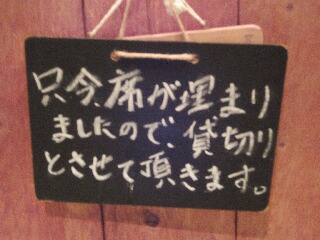 只今、席が埋まり
ましたので、貸切り
とさせて頂きます。